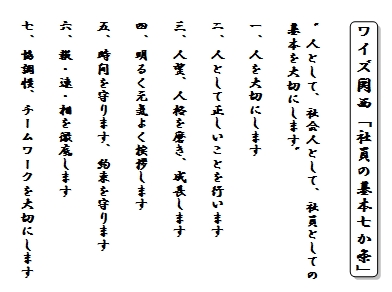 ワイズ関西「社員の基本七か条」
”人として、社会人として、社員としての
基本を大切にします”
一、人を大切にします
二、人として正しいことを行います
三、人望、人格を磨き、成長します
四、明るく元気よく挨拶します
五、時間を守ります、約束を守ります
六、報・連・相を徹底します
七、協調性、チームワークを大切にします